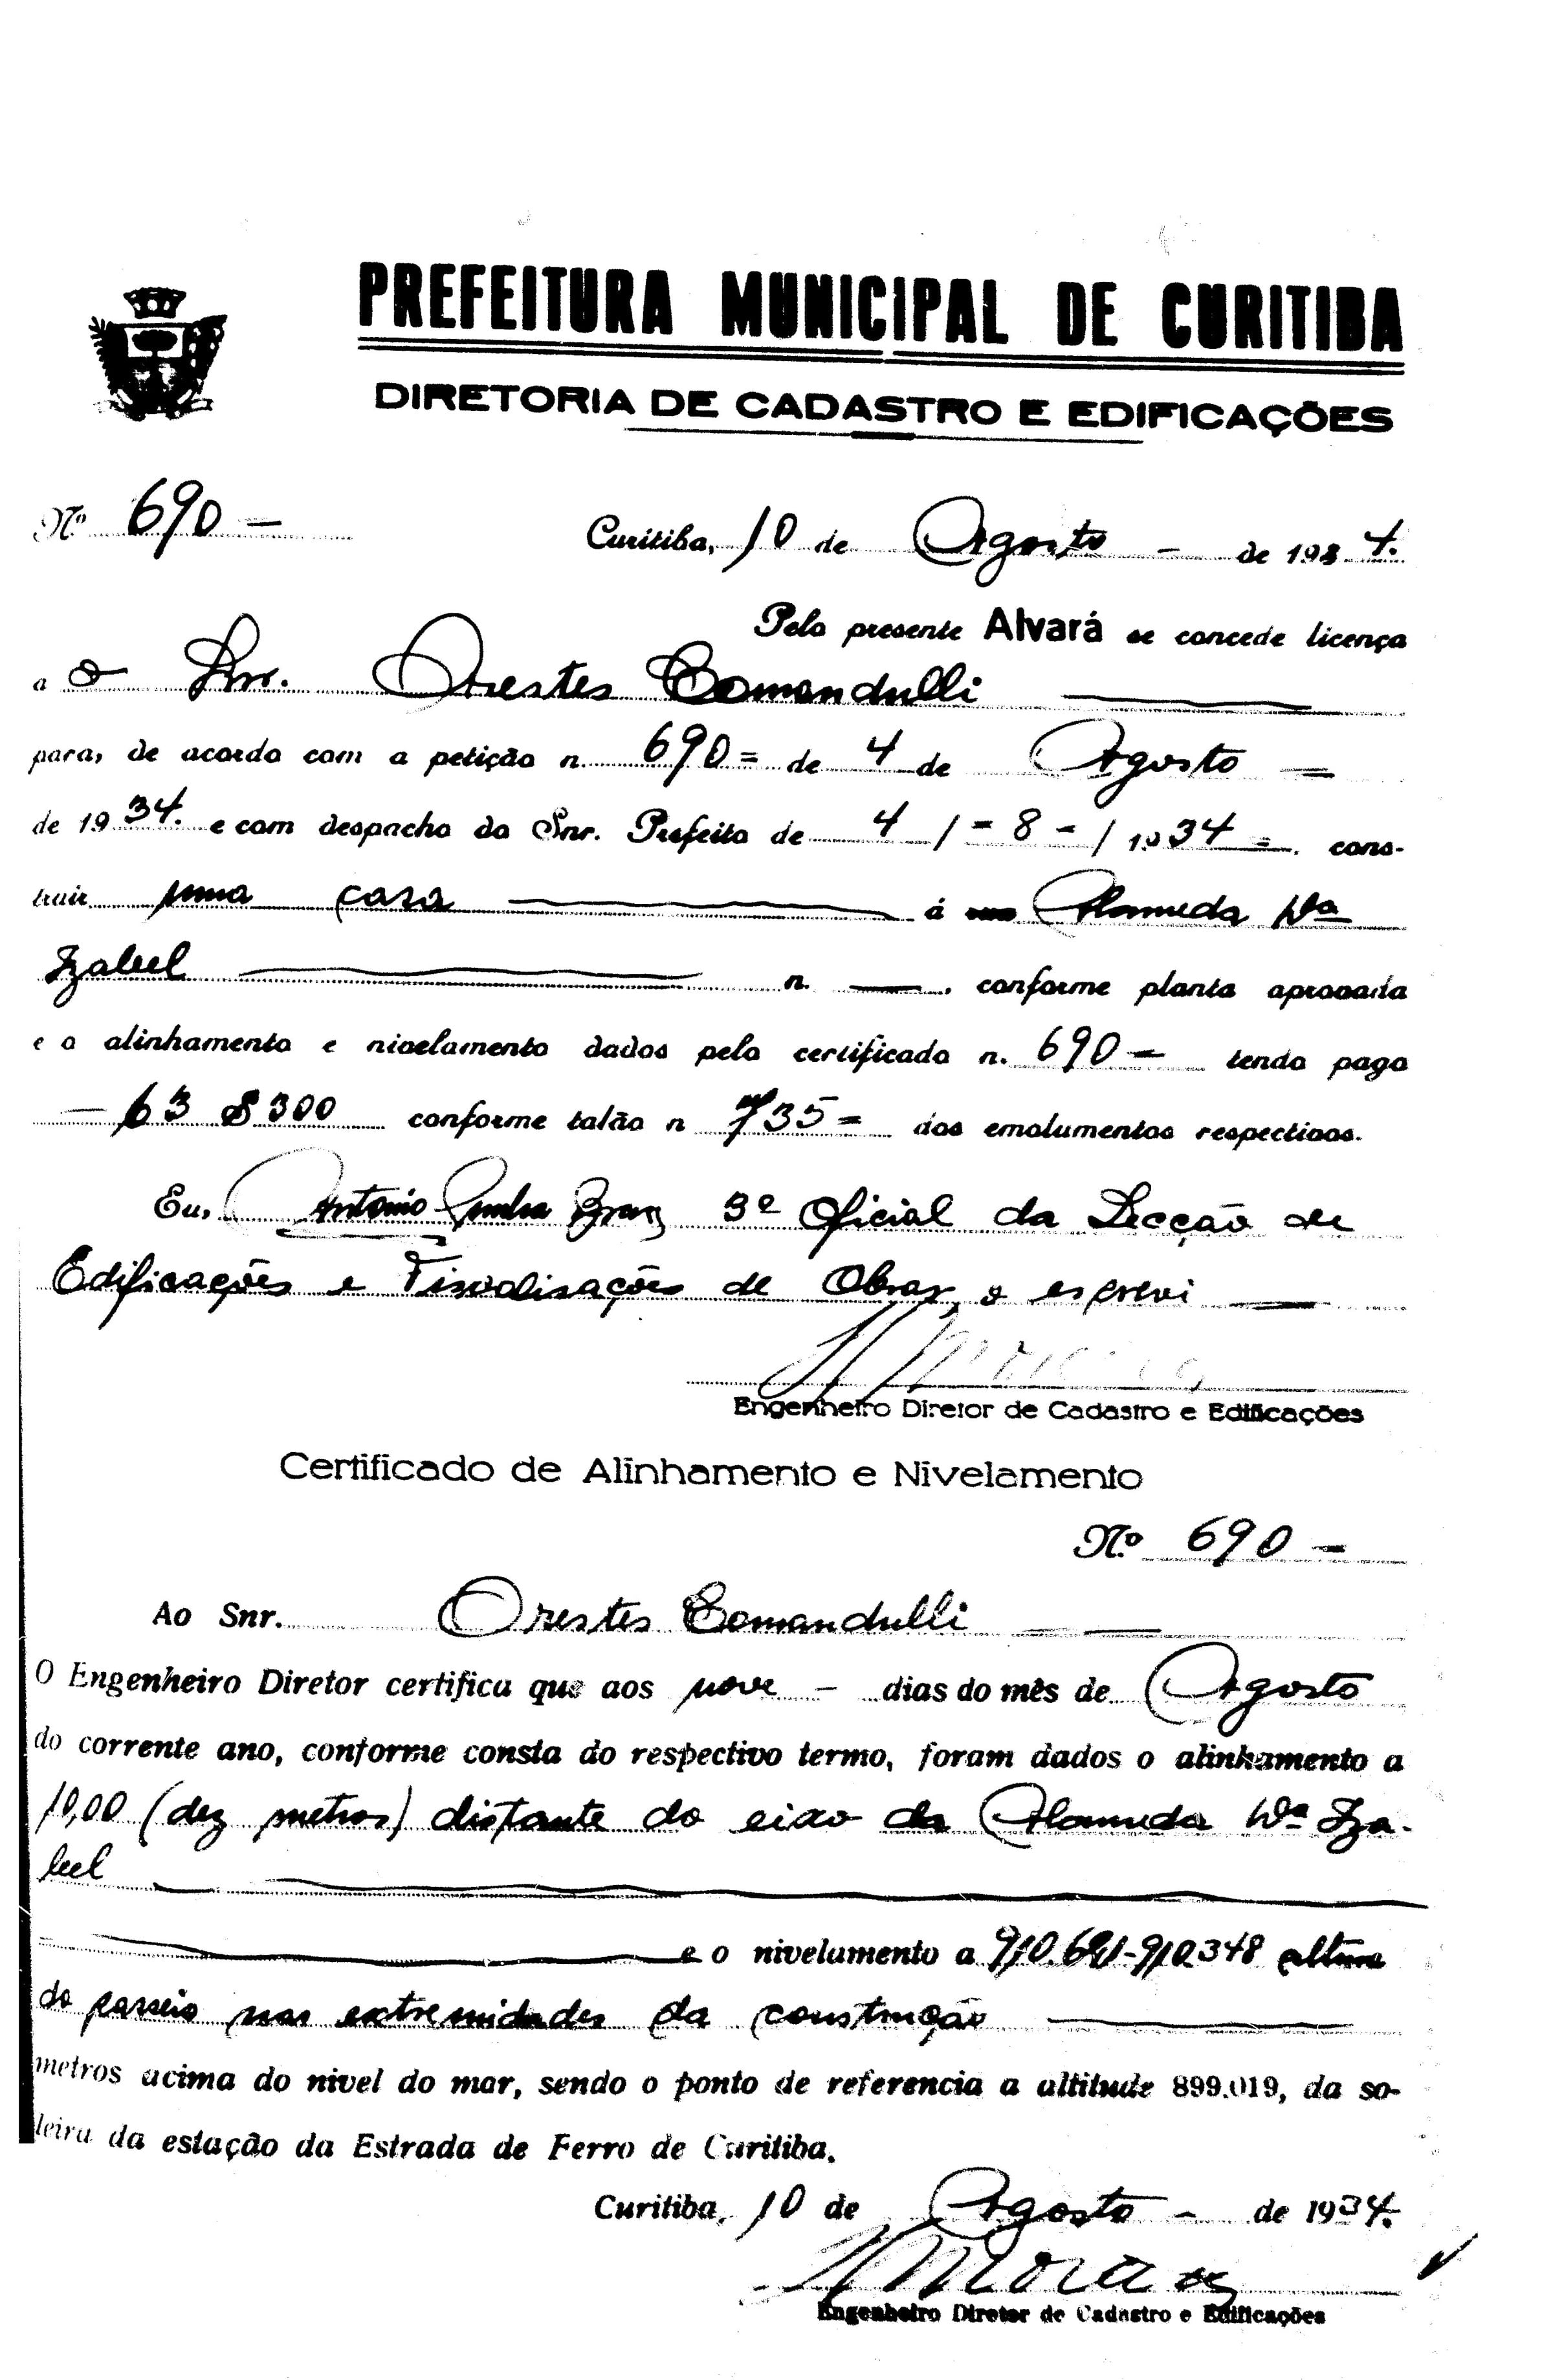 PREFEITURA MUNICIPAL DE CURITIBA
DIRETORIA DE CADASTRO E EDIFICAÇÕES
Nº 690 –
Curitiba, 10 de Agosto – de 1934.
Pelo presente Alvará se concede licença
a o Snr. Orestes Comandulli
para, de acordo com a petição n. 690 = de 4 de Agosto =
de 1934. e com despacho do Snr. Prefeito de 4 / = 8 = / 1934 =. cons-
truir uma casa á Alameda Dª
Izabel n. —. conforme planta aprovada
e o alinhamento e nivelamento dados pelo certificado n. 690 — tendo pago
— 63$300 conforme talão n 735 = dos emolumentos respectivos.
Eu, Antonio 3º Oficial da Secção de
Edificações e Fiscalisações de Obras, o escrevi —
Engenheiro Diretor de Cadastro e Edificações
Certificado de Alinhamento e Nivelamento
Nº 690 –
Ao Snr. Orestes Comandulli
O Engenheiro Diretor certifica que aos nove – dias do mês de Agosto
do corrente ano, conforme consta do respectivo termo, foram dados o alinhamento a
10,00 (dez metros) distante do eixo da Alameda Dª Iza-
bel
e o nivelamento a 910.348 altura
do passeio nas extremidades da construção
metros acima do nivel do mar, sendo o ponto de referencia a altitude 899.019, da so-
leira da estação da Estrada de Ferro de Curitiba.
Curitiba, 10 de Agosto – de 1934.
Engenheiro Diretor de Cadastro e Edificações